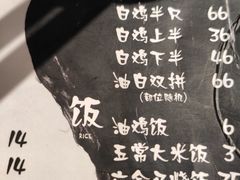 白鸡半只 66
白鸡上半 36
白鸡下半 46
油白双拼 66
(部位随机)
饭
RICE
油鸡饭 6
五常大米饭 3
14
14